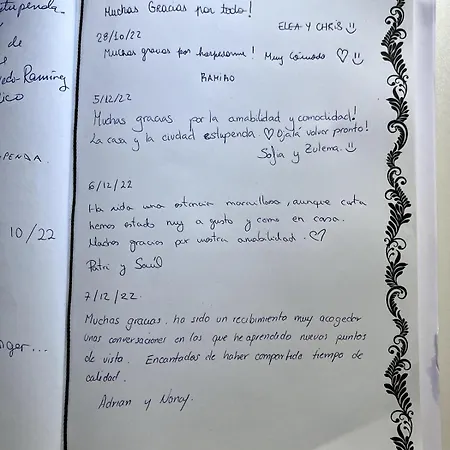 stupenda.
de
edo-Ramírez
ico
PENDA.
10/22
nger...
Muchas Gracias por todo!
ELEA Y CHRIS
28/10/22
Muchas gracias por hospedarme! Muy Cómodo
RAMIRO
5/12/22
Muchas gracias por la amabilidad y comodidad!
La casa y la ciudad estupenda. Ojalá volver pronto!
Sofia y Zulema.
6/12/22
Ha sido una estancia maravillosa, aunque corta
hemos estado muy a gusto y como en casa.
Muchas gracias por vuestra amabilidad.
Patri y Saúl
7/12/22.
Muchas gracias, ha sido un recibimiento muy acogedor
unas conversaciones en las que he aprendido nuevos puntos
de vista. Encantadas de haber compartido tiempo de
calidad.
Adrian y Nonoy.